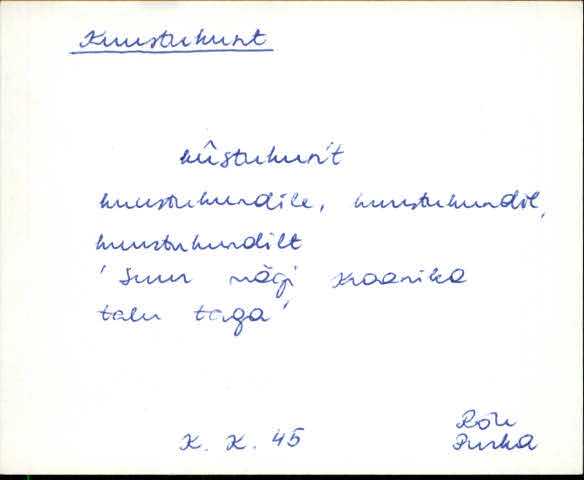 Kuustukunt
kûstukuńt
kuustukundile, kuustukundil,
kuustukundilt
'Suur mägi Kraanika
talu taga'
K. K. 45
Rõu